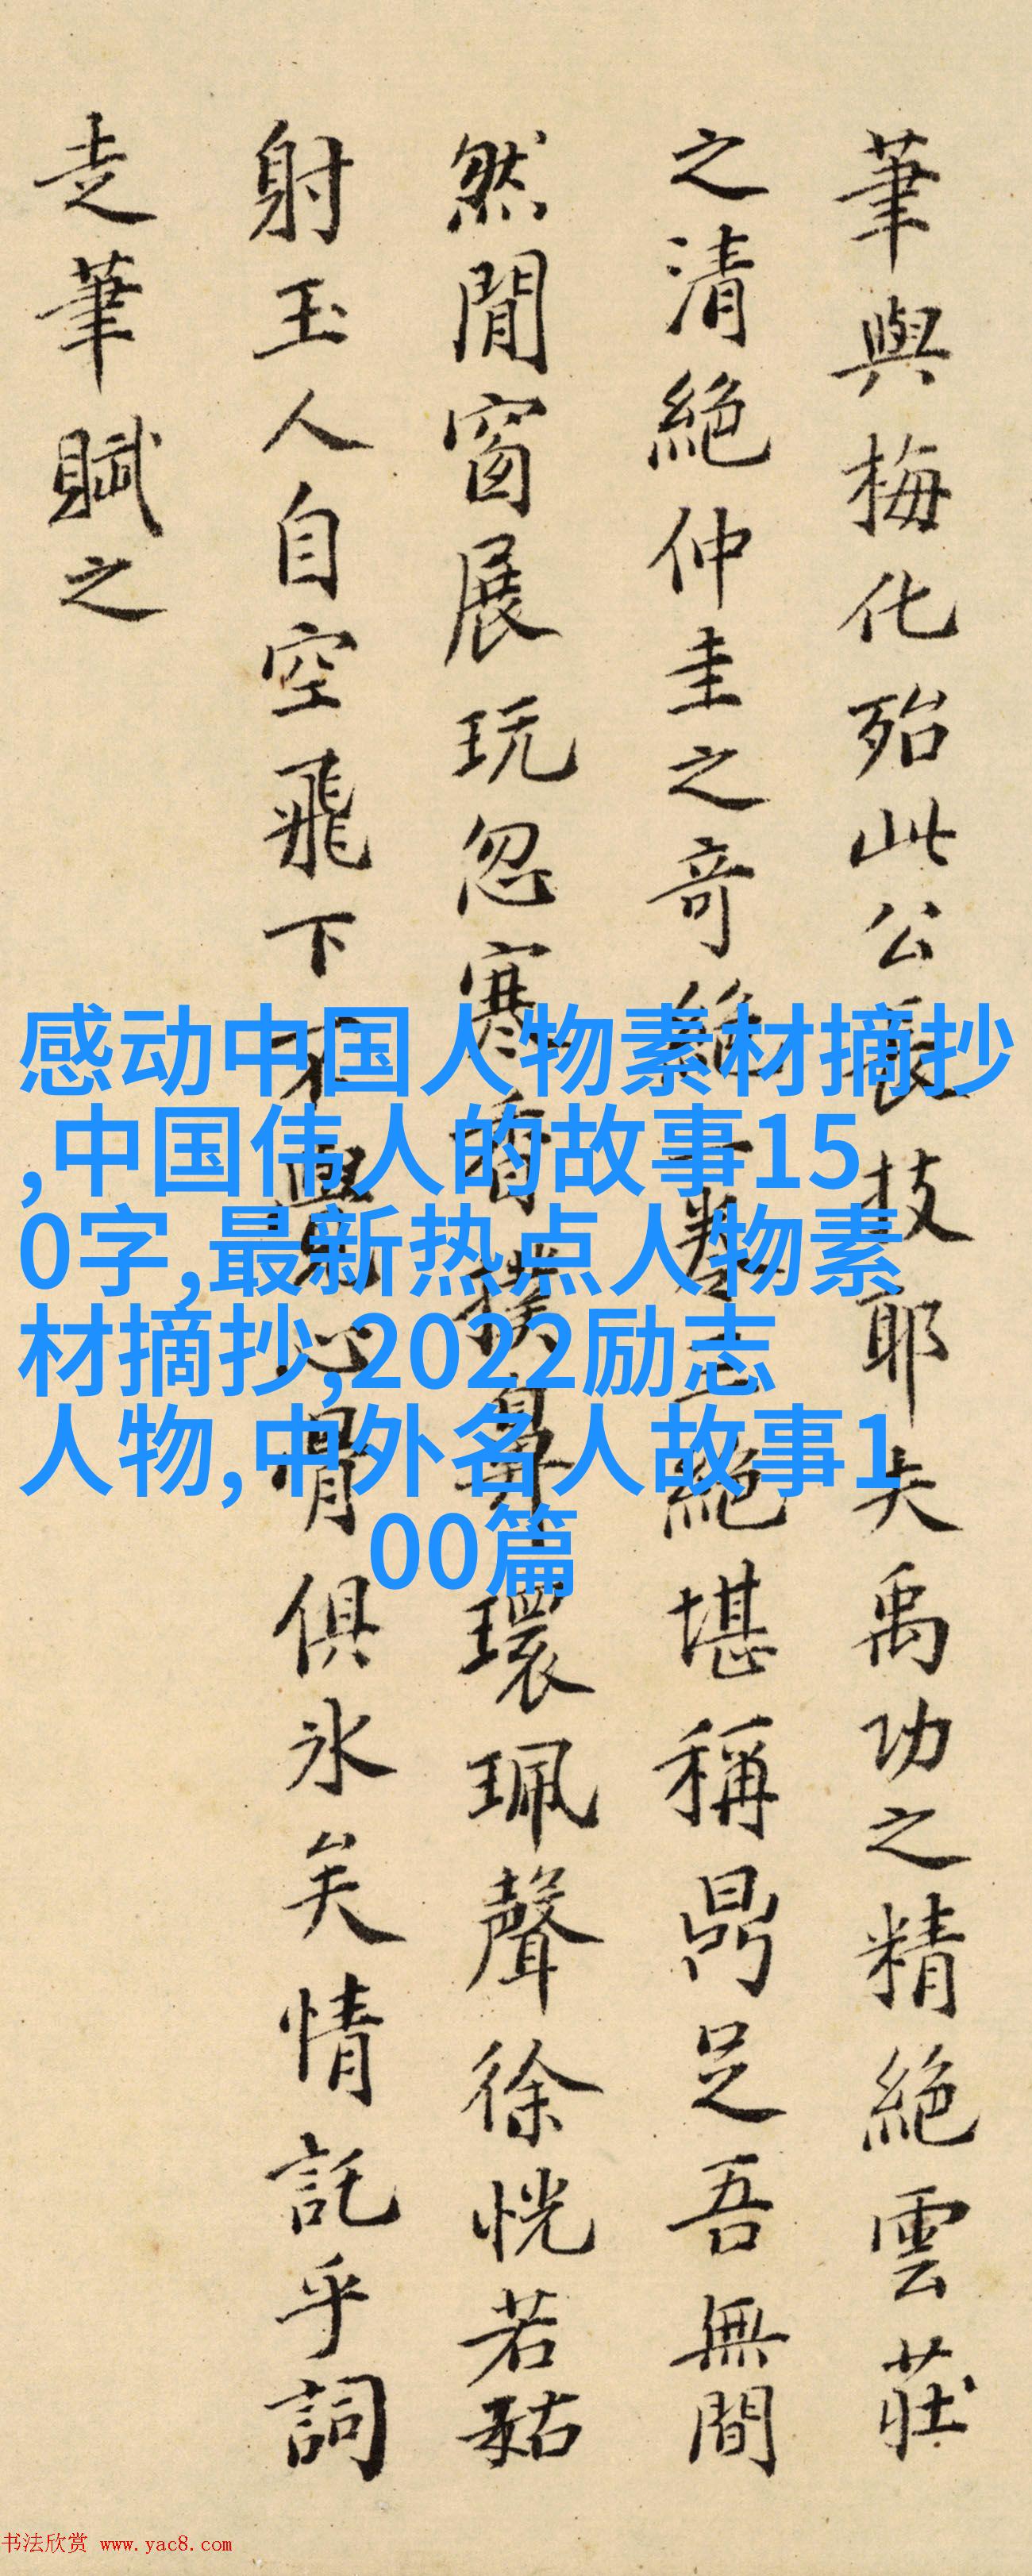 筆與梅化殆此公長技耶夫禹功之精絕雲莊
之清絕仲圭之奇絕絕堪稱鼎足吾無間
然閒窗展玩忽寒香撲鼻環珮聲徐恍若
射玉人自空飛下不覺心骨俱氷矣情託乎詞
走筆賦之
感动中国人物素材摘抄
,中国伟人的故事15
0字,最新热点人物素
材摘抄,2022励志
人物,中外名人故事1
00篇
书法欣赏 www.yac8.com